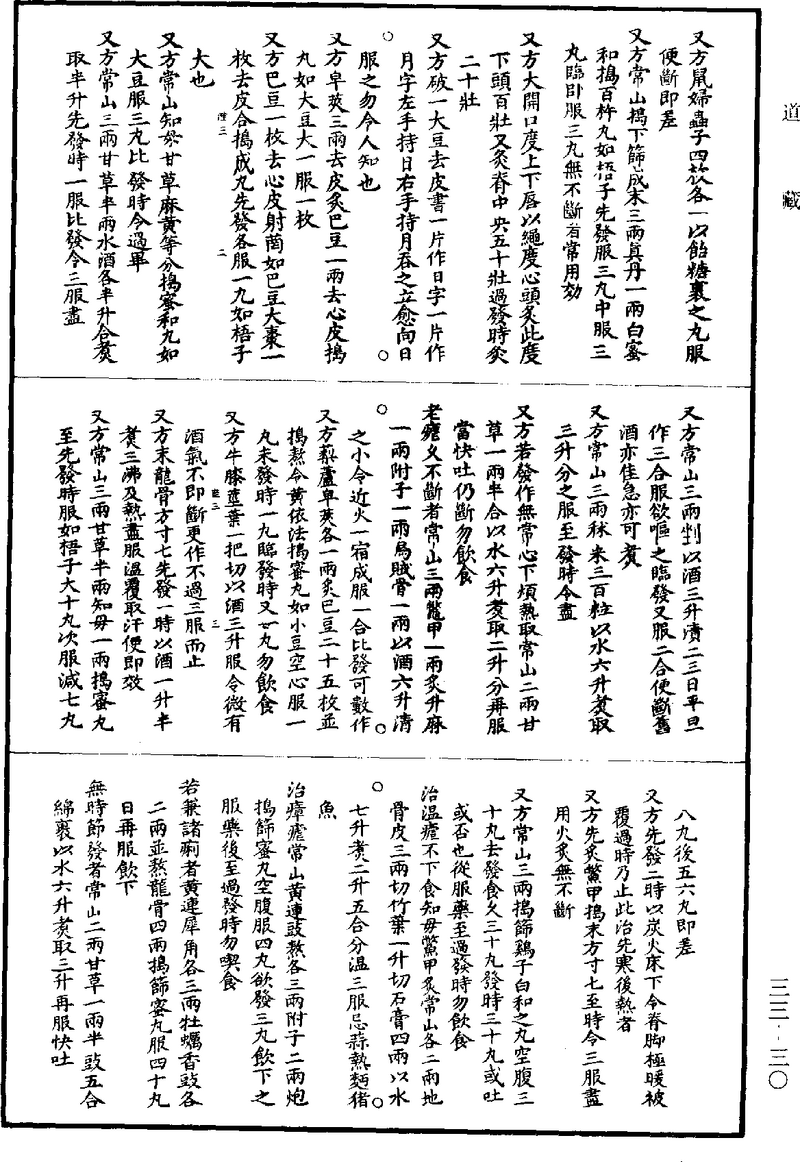 道藏
又方鼠婦蟲子四枚各一以飴糖裹之丸服
便斷即差
又方常山搗下篩成末三兩真丹一兩白蜜
和搗百杵丸如梧子先發服三丸中服三
丸臨卧服三丸無不斷者常用效
又方大開口度上下唇以繩度心頭炙此度
下頭百壯又灸脊中央五十壯過發時灸
二十壯
又方破一大豆去皮書一片作日字一片作
月字左手持日右手持月吞之立愈向日
服之勿令人知也
又方皁莢三兩去皮炙巴豆一兩去心皮搗
丸如大豆大一服一枚
又方巴豆一枚去心皮射菵如巴豆大棗一
枚去皮合搗成丸先發各服一丸如梧子
大也
又方常山知母甘草麻黃等分搗蜜和丸如
大豆服三丸比發時令過畢
又方常山三兩甘草半兩水酒各半升合煮
取半升先發時一服比發令三服盡
又方常山三兩剉以酒三升漬二三日平旦
作三合服欲嘔之臨發又服二合便斷舊
酒亦佳急亦可煮
又方常山三兩秫米三百粒以水六升煮取
三升分之服至發時令盡
又方若發作無常心下煩熱取常山二兩甘
草一兩半合以水六升煮取二升分再服
當快吐仍斷勿飲食
老瘧久不斷者常山三兩鱉甲一兩炙升麻
一兩附子一兩烏賊骨一兩以酒六升漬
之小令近火一宿成服一合比發可數作
又方藜蘆皁莢各一兩炙巴豆二十五枚並
搗熬令黃依法搗蜜丸如小豆空心服一
丸未發時一丸臨發時又一丸勿飲食
又方牛膝莖葉一把切以酒三升服令微有
酒氣不即斷更作不過三服而止
又方末龍骨方寸七先發一時以酒一升半
煮三沸及熱盡服溫覆取汗便即效
又方常山三兩甘草半兩知毋一兩搗蜜丸
至先發時服如梧子大十丸次服減七丸
八九後五六丸即差
又方先發二時以炭火床下令脊脚極暖被
覆過時乃止此治先寒後熱者
又方先炙鱉甲搗末方寸七至時令三服盡
用火炙無不斷
又方常山三兩搗篩鷄子白和之丸空腹三
十丸去發食久三十丸發時三十丸或吐
或否也從服藥至過發時勿飲食
治溫瘧不下食知毋鱉甲炙常山各二兩地
骨皮三兩切竹葉一升切石膏四兩以水
七升煮二升五合分溫三服忌蒜熱麵猪
魚
治瘴瘧常山黃連豉熬各三兩附子二兩炮
搗篩蜜丸空腹服四丸欲發三丸飲下之
服藥後至過發時勿喫食
若兼諸痢者黃連犀角各三兩牡蠣香豉各
二兩並熬龍骨四兩搗篩蜜丸服四十丸
日再服飲下
無時節發者常山二兩甘草一兩半豉五合
綿裹以水六升煮取三升再服快吐
三三‐三〇